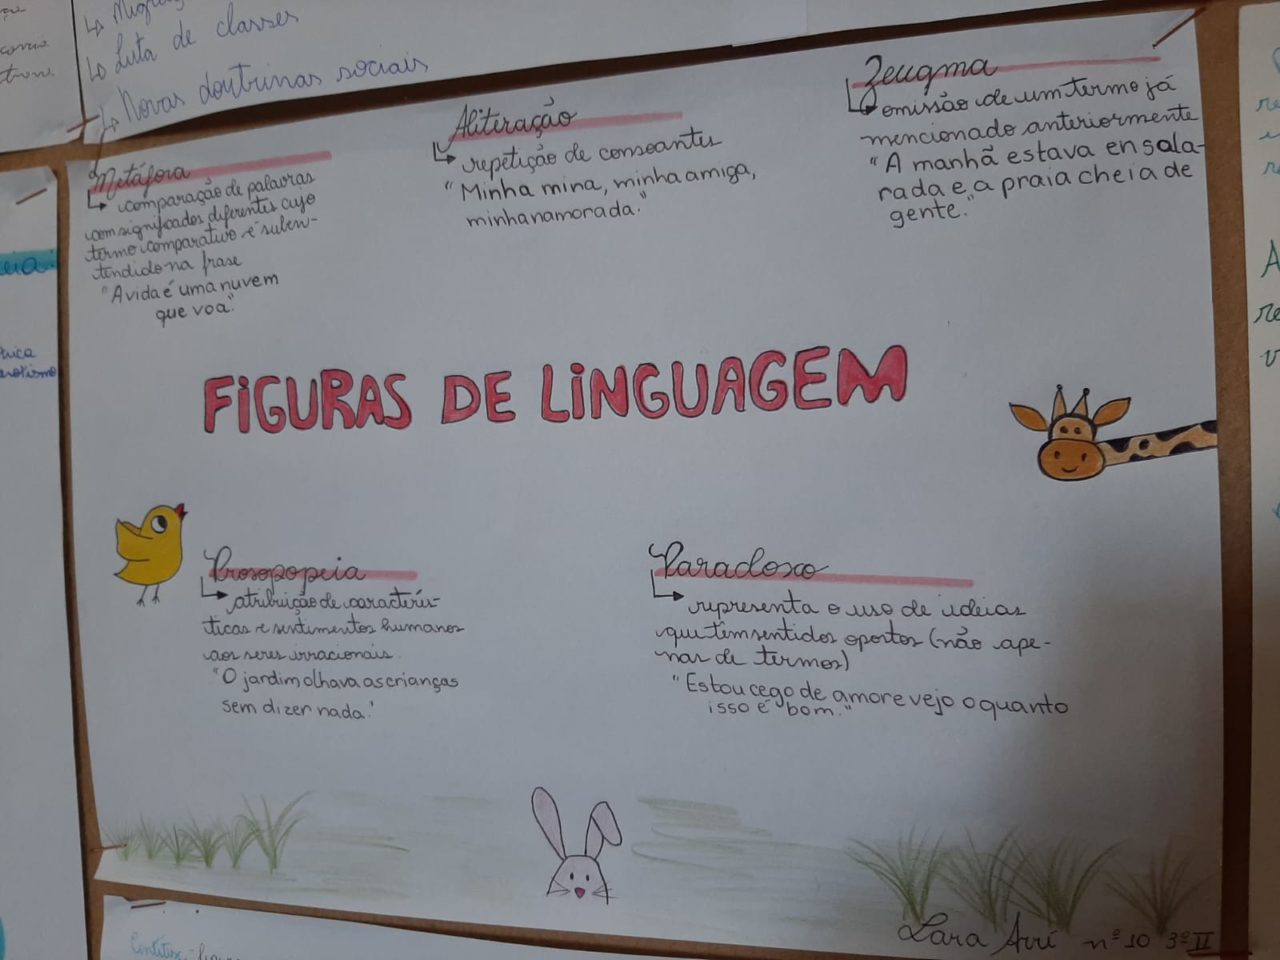 Luta de classes
Novas doutrinas sociais
Metáfora
comparação de palavras
com significados diferentes cujo
termo comparativo é suben-
tendido na frase
"A vida é uma nuvem
que voa."
Aliteração
repetição de consoantes
"Minha mina, minha amiga,
minha namorada."
Zeugma
omissão de um termo já
mencionado anteriormente
"A manhã estava ensola-
rada e a praia cheia de
gente."
FIGURAS DE LINGUAGEM
Prosopopeia
atribuição de caracterís-
ticas e sentimentos humanos
aos seres irracionais.
"O jardim olhava as crianças
sem dizer nada."
Paradoxo
representa o uso de ideias
que têm sentidos opostos (não ape-
nas de termos)
"Estou cego de amor e vejo o quanto
isso é bom."
Lara nº 10 3º II